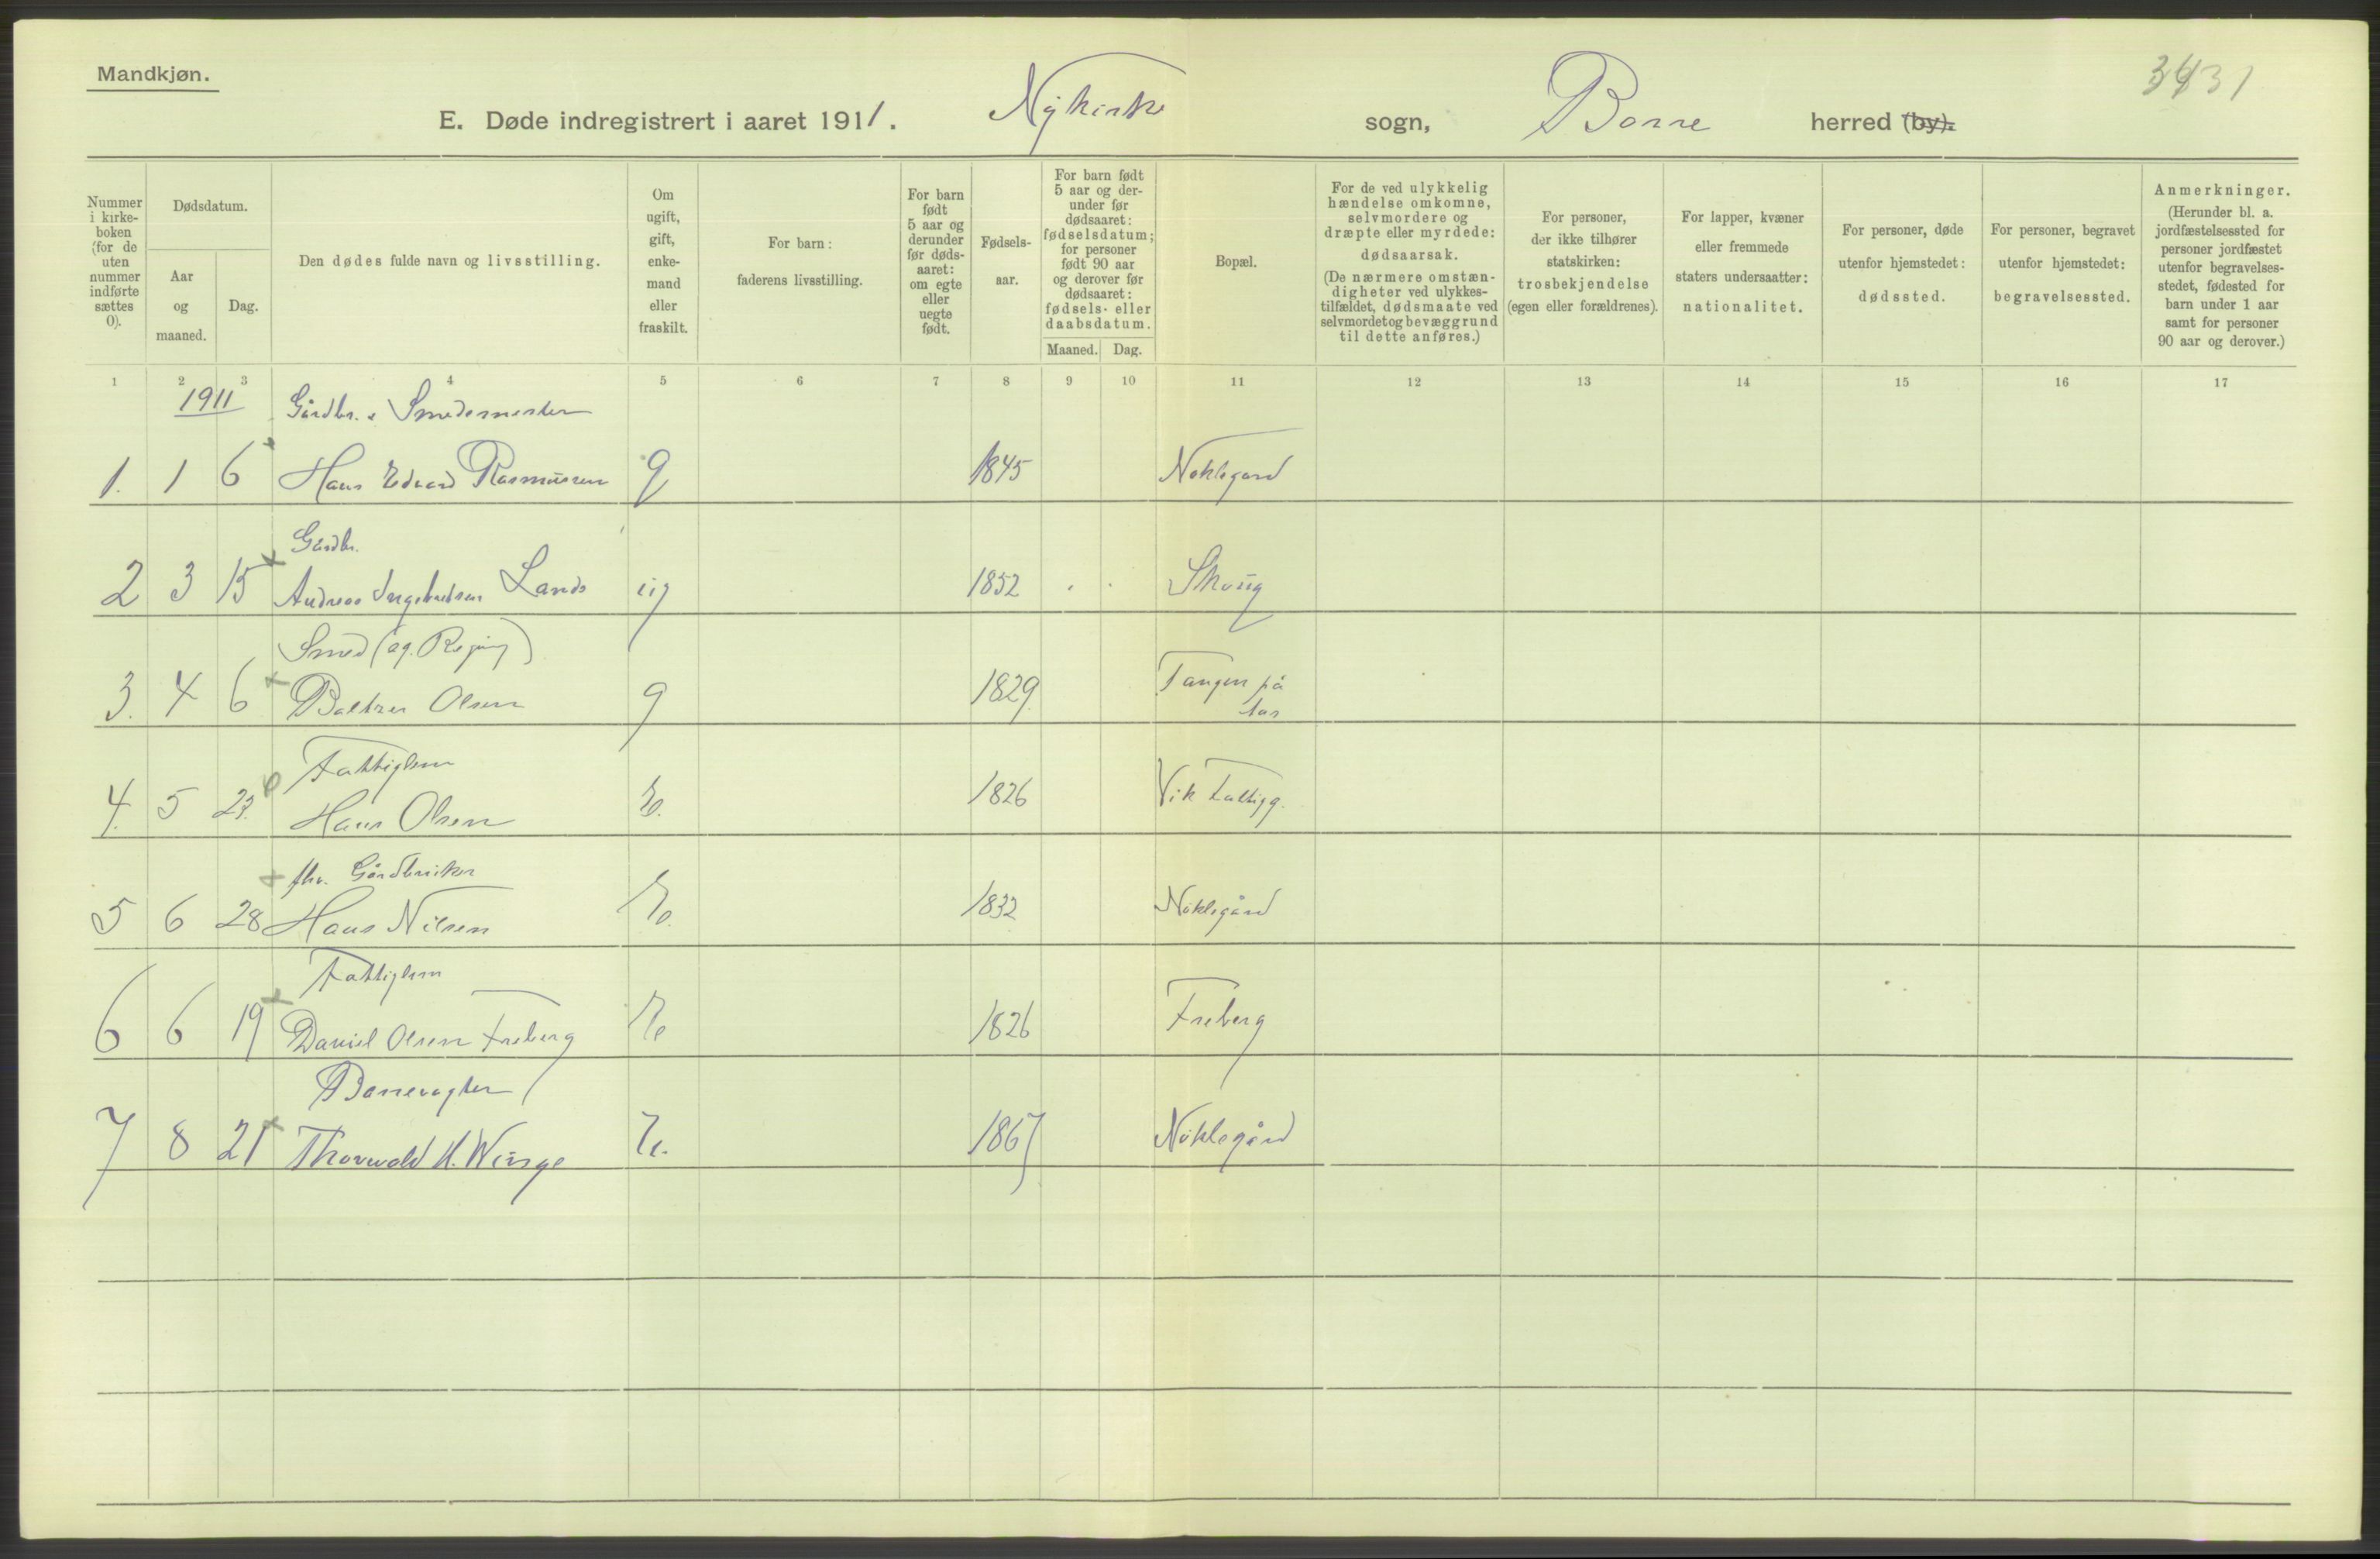 Mandkjøn.
3431
E. Døde indregistrert i aaret 1911. Nykirke sogn, Borre herred (by).
Nummer i kirkeboken (for de uten nummer indførte sættes 0).
Dødsdatum.
Aar og maaned.
Dag.
Den dødes fulde navn og livsstilling.
Om ugift, gift, enkemand eller fraskilt.
For barn: faderens livsstilling.
For barn født 5 aar og derunder før dødsaaret: om egte eller uegte født.
Fødselsaar.
For barn født 5 aar og derunder før dødsaaret: fødselsdatum; for personer født 90 aar og derover før dødsaaret: fødsels- eller daabsdatum.
Maaned.
Dag.
Bopæl.
For de ved ulykkelig hændelse omkomne, selvmordere og dræpte eller myrdede: dødsaarsak. (De nærmere omstændigheter ved ulykkestilfældet, dødsmaate ved selvmordet og bevæggrund til dette anføres.)
For personer, der ikke tilhører statskirken: trosbekjendelse (egen eller forældrenes).
For lapper, kvæner eller fremmede staters undersaatter: nationalitet.
For personer, døde utenfor hjemstedet: dødssted.
For personer, begravet utenfor hjemstedet: begravelsessted.
Anmerkninger. (Herunder bl. a. jordfæstelsessted for personer jordfæstet utenfor begravelsesstedet, fødested for barn under 1 aar samt for personer 90 aar og derover.)
1 2 3 4 5 6 7 8 9 10 11 12 13 14 15 16 17
1911 Gårdbr. & Smedemester
1. 1 6 Hans Edvard Rasmussen g 1845 Nøklegård
Gårdbr.
2 3 15 Andreas Ingebretsen Lands ug 1852 Skoug
Smed
3. 4 6 Baltzer Olsen g 1829 Tangen på
Aas
Fattiglem
4. 5 23. Hans Olsen E. 1826 Vik Fattigg.
fhv. Gårdbruker
5 6 28 Hans Nilsen E. 1832 Nøklegård
Fattiglem
6 6 19 Daniel Olsen Freberg E. 1826 Freberg
Banevogter
7 8 21 Thorwald H. Winge E. 1867 Nøklegård